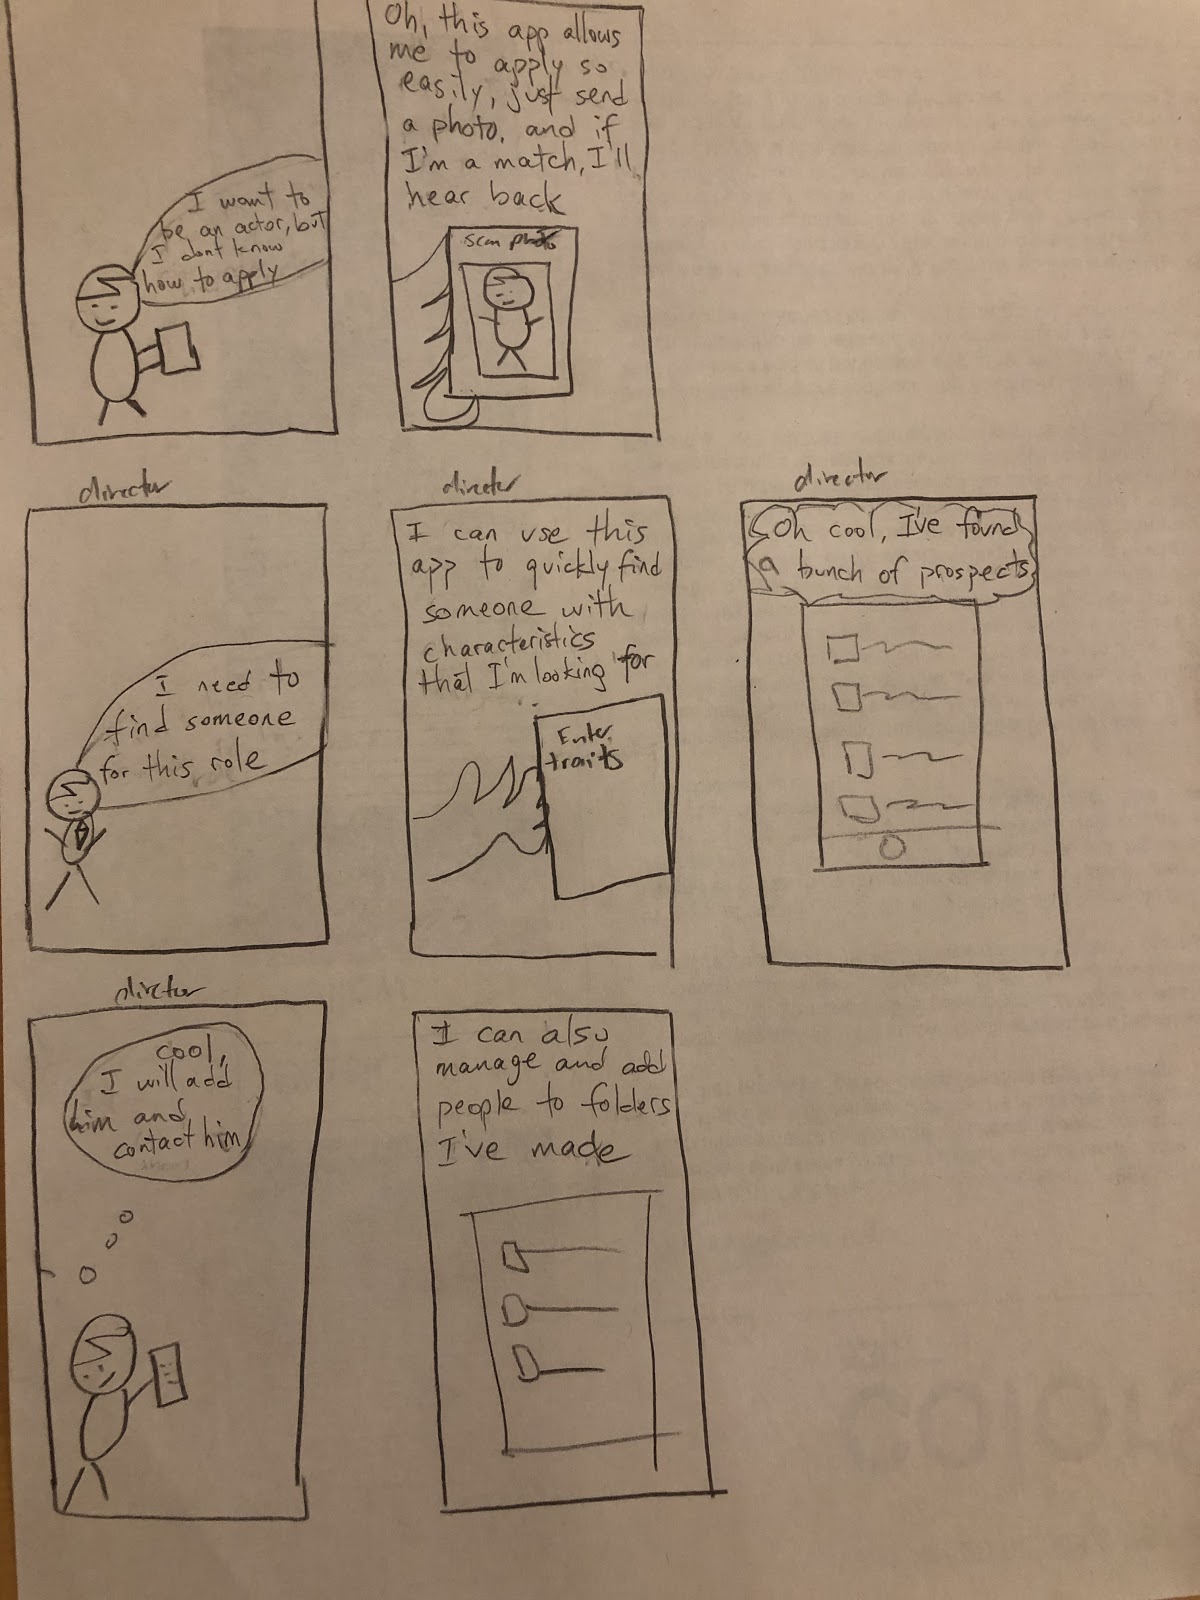 I want to
be an actor, but
I dont know
how to apply
Oh, this app allows
me to apply so
easily, just send
a photo, and if
I'm a match, I'll
hear back
scan photo
director
I need to
find someone
for this role
director
I can use this
app to quickly find
someone with
characteristics
that I'm looking for
Enter
traits
director
Oh cool, I've found
a bunch of prospects
director
cool,
I will add
him and
contact him
I can also
manage and add
people to folders
I've made